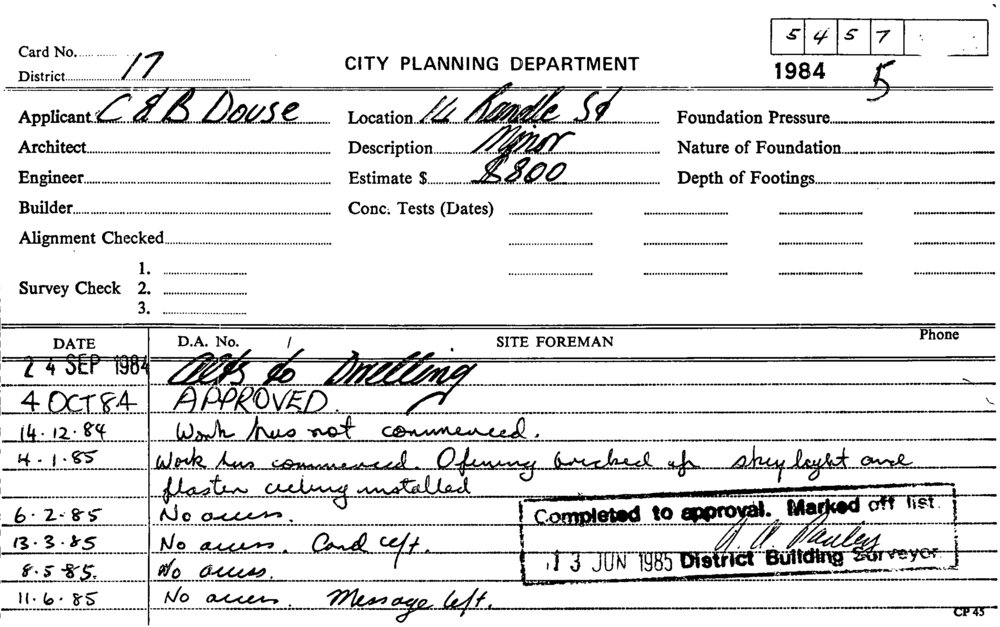 5 4 5 7
Card No.
District 17
CITY PLANNING DEPARTMENT
1984 5
Applicant C & B Douse
Location 14 Randle St
Foundation Pressure
Architect
Description Minor
Nature of Foundation
Engineer
Estimate $ $800
Depth of Footings
Builder
Conc. Tests (Dates)
Alignment Checked
1.
Survey Check 2.
3.
DATE D.A. No. / SITE FOREMAN Phone
24 SEP 1984 Alts to Dwelling
4 OCT 84 APPROVED.
14.12.84 Work has not commenced.
14.1.85 Work has commenced. Opening bricked up skylight and
plaster ceiling installed
6.2.85 No access.
13.3.85 No access. Card left.
8.5.85. No access.
11.6.85 No access. Message left.
Completed to approval. Marked off list.
13 JUN 1985 District Building Surveyor
CP 45